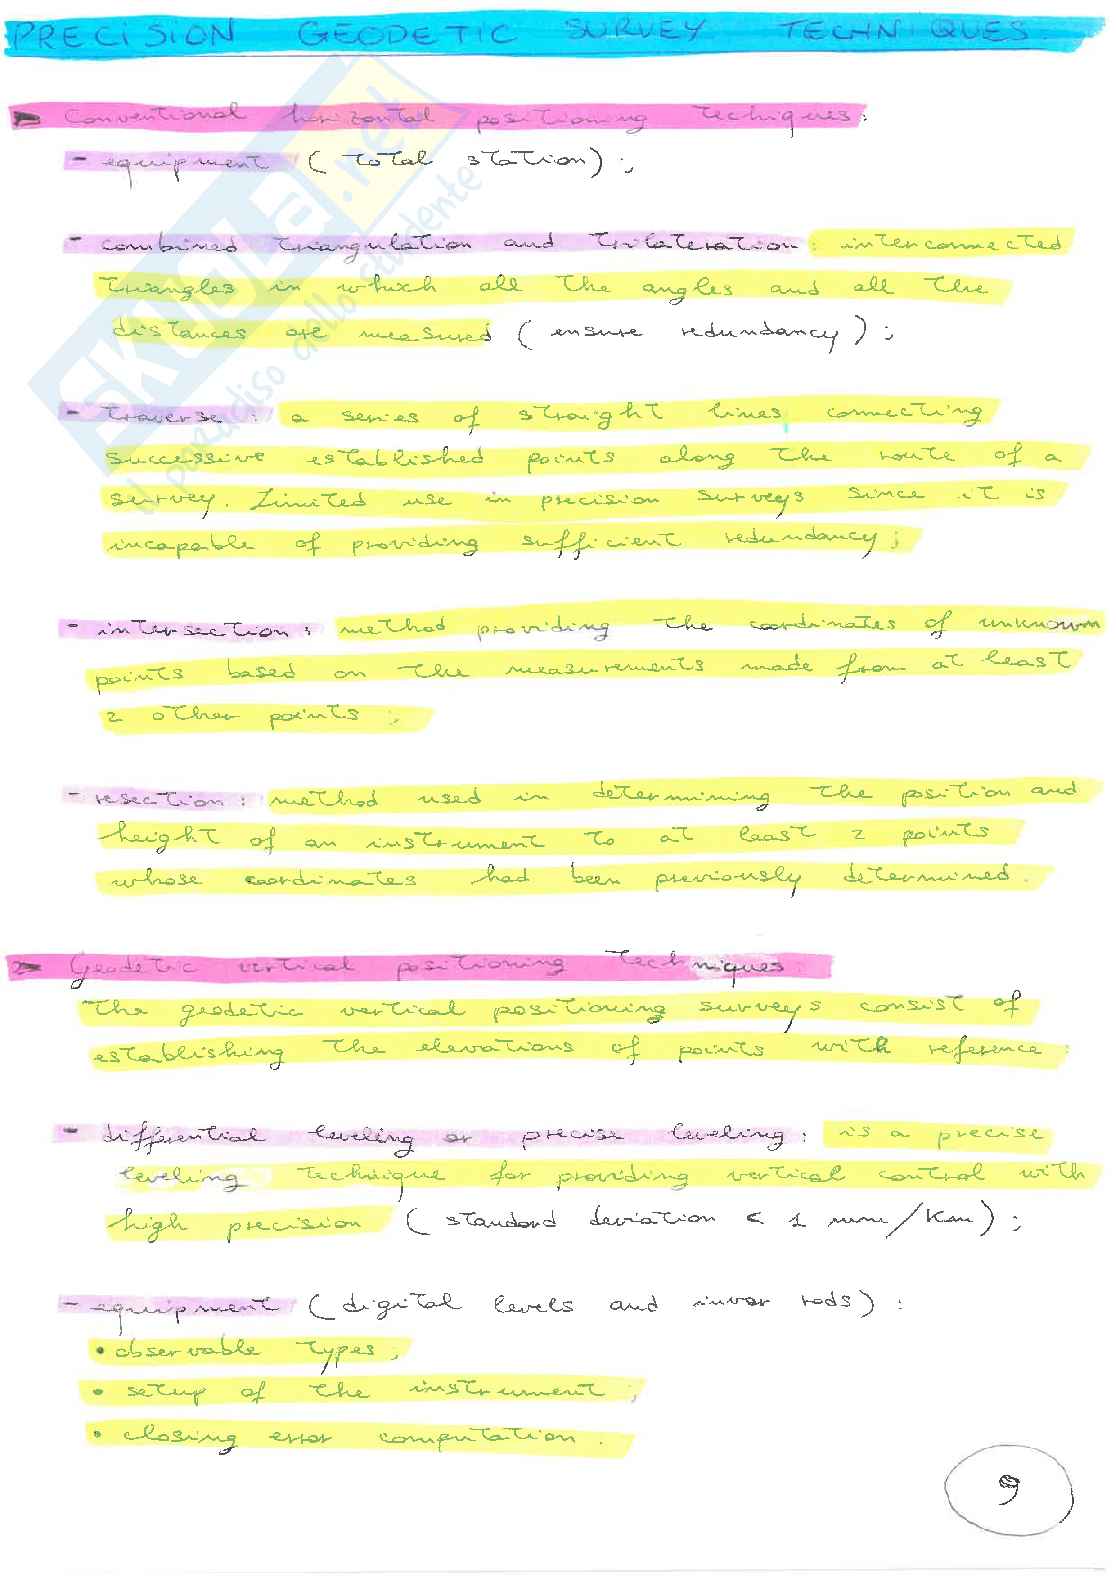 PRECISION GEODETIC SURVEY TECHNIQUES.
Conventional horizontal positioning techiques:
- equipment (total station);
- combined triangulation and trilateration: interconnected
triangles in which all the angles and all the
distances are measured (ensure redundancy);
- traverse: a series of straight lines connecting
successive established points along the route of a
survey. Limited use in precision surveys since it is
incapable of providing sufficient redundancy;
- intersection: method providing the coordinates of unknown
points based on the measurements made from at least
2 other points;
- resection: method used in determining the position and
height of an instrument to at least 2 points
whose coordinates had been previously determined.
Geodetic vertical positioning techniques:
The geodetic vertical positioning surveys consist of
establishing the elevations of points with reference:
- differential leveling or precise leveling: is a precise
leveling technique for providing vertical control with
high precision (standard deviation < 1 mm/Km);
- equipment (digital levels and invar rods):
• observable types;
• setup of the instrument;
• closing error computation.
9
SKUOLA.net
il paradiso dello studente